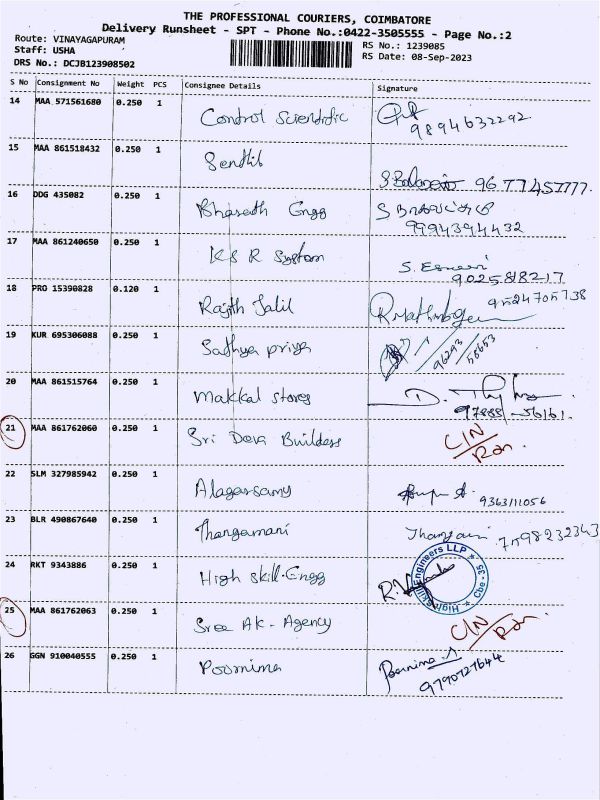 THE PROFESSIONAL COURIERS, COIMBATORE
Delivery Runsheet - SPT - Phone No.:0422-3505555 - Page No.:2
Route: VINAYAGAPURAM
Staff: USHA
RS No.: 1239085
DRS No.: DCJB123908502
RS Date: 08-Sep-2023
S No Consignment No Weight PCS Consignee Details Signature
14 MAA 571561680 0.250 1 Control Scientific
9894632292
15 MAA 861518432 0.250 1 Senthil
9677457777.
16 DDG 435082 0.250 1 Bharath Engg
9994394432
17 MAA 861240650 0.250 1 KS R System
S. Eswari
9025818217
18 PRO 15390828 0.120 1 Rajith Jalil
9524705738
19 KUR 695306088 0.250 1 Sathya priya
96293
58653
20 MAA 861515764 0.250 1 Makkal stores
97888-56161.
21 MAA 861762060 0.250 1 Sri Deva Builders
C/N
Rtn.
22 SLM 327985942 0.250 1 Alagarsamy
9363111056
23 BLR 490867640 0.250 1 Thangamani
7598232343
24 RKT 9343886 0.250 1 High skill-Engg
High Skill Engineers LLP * Cbe - 35. *
25 MAA 861762063 0.250 1 Sree AK- Agency
C/N
Rtn
26 GGN 910040555 0.250 1 Poornima
Poornima
9790727644